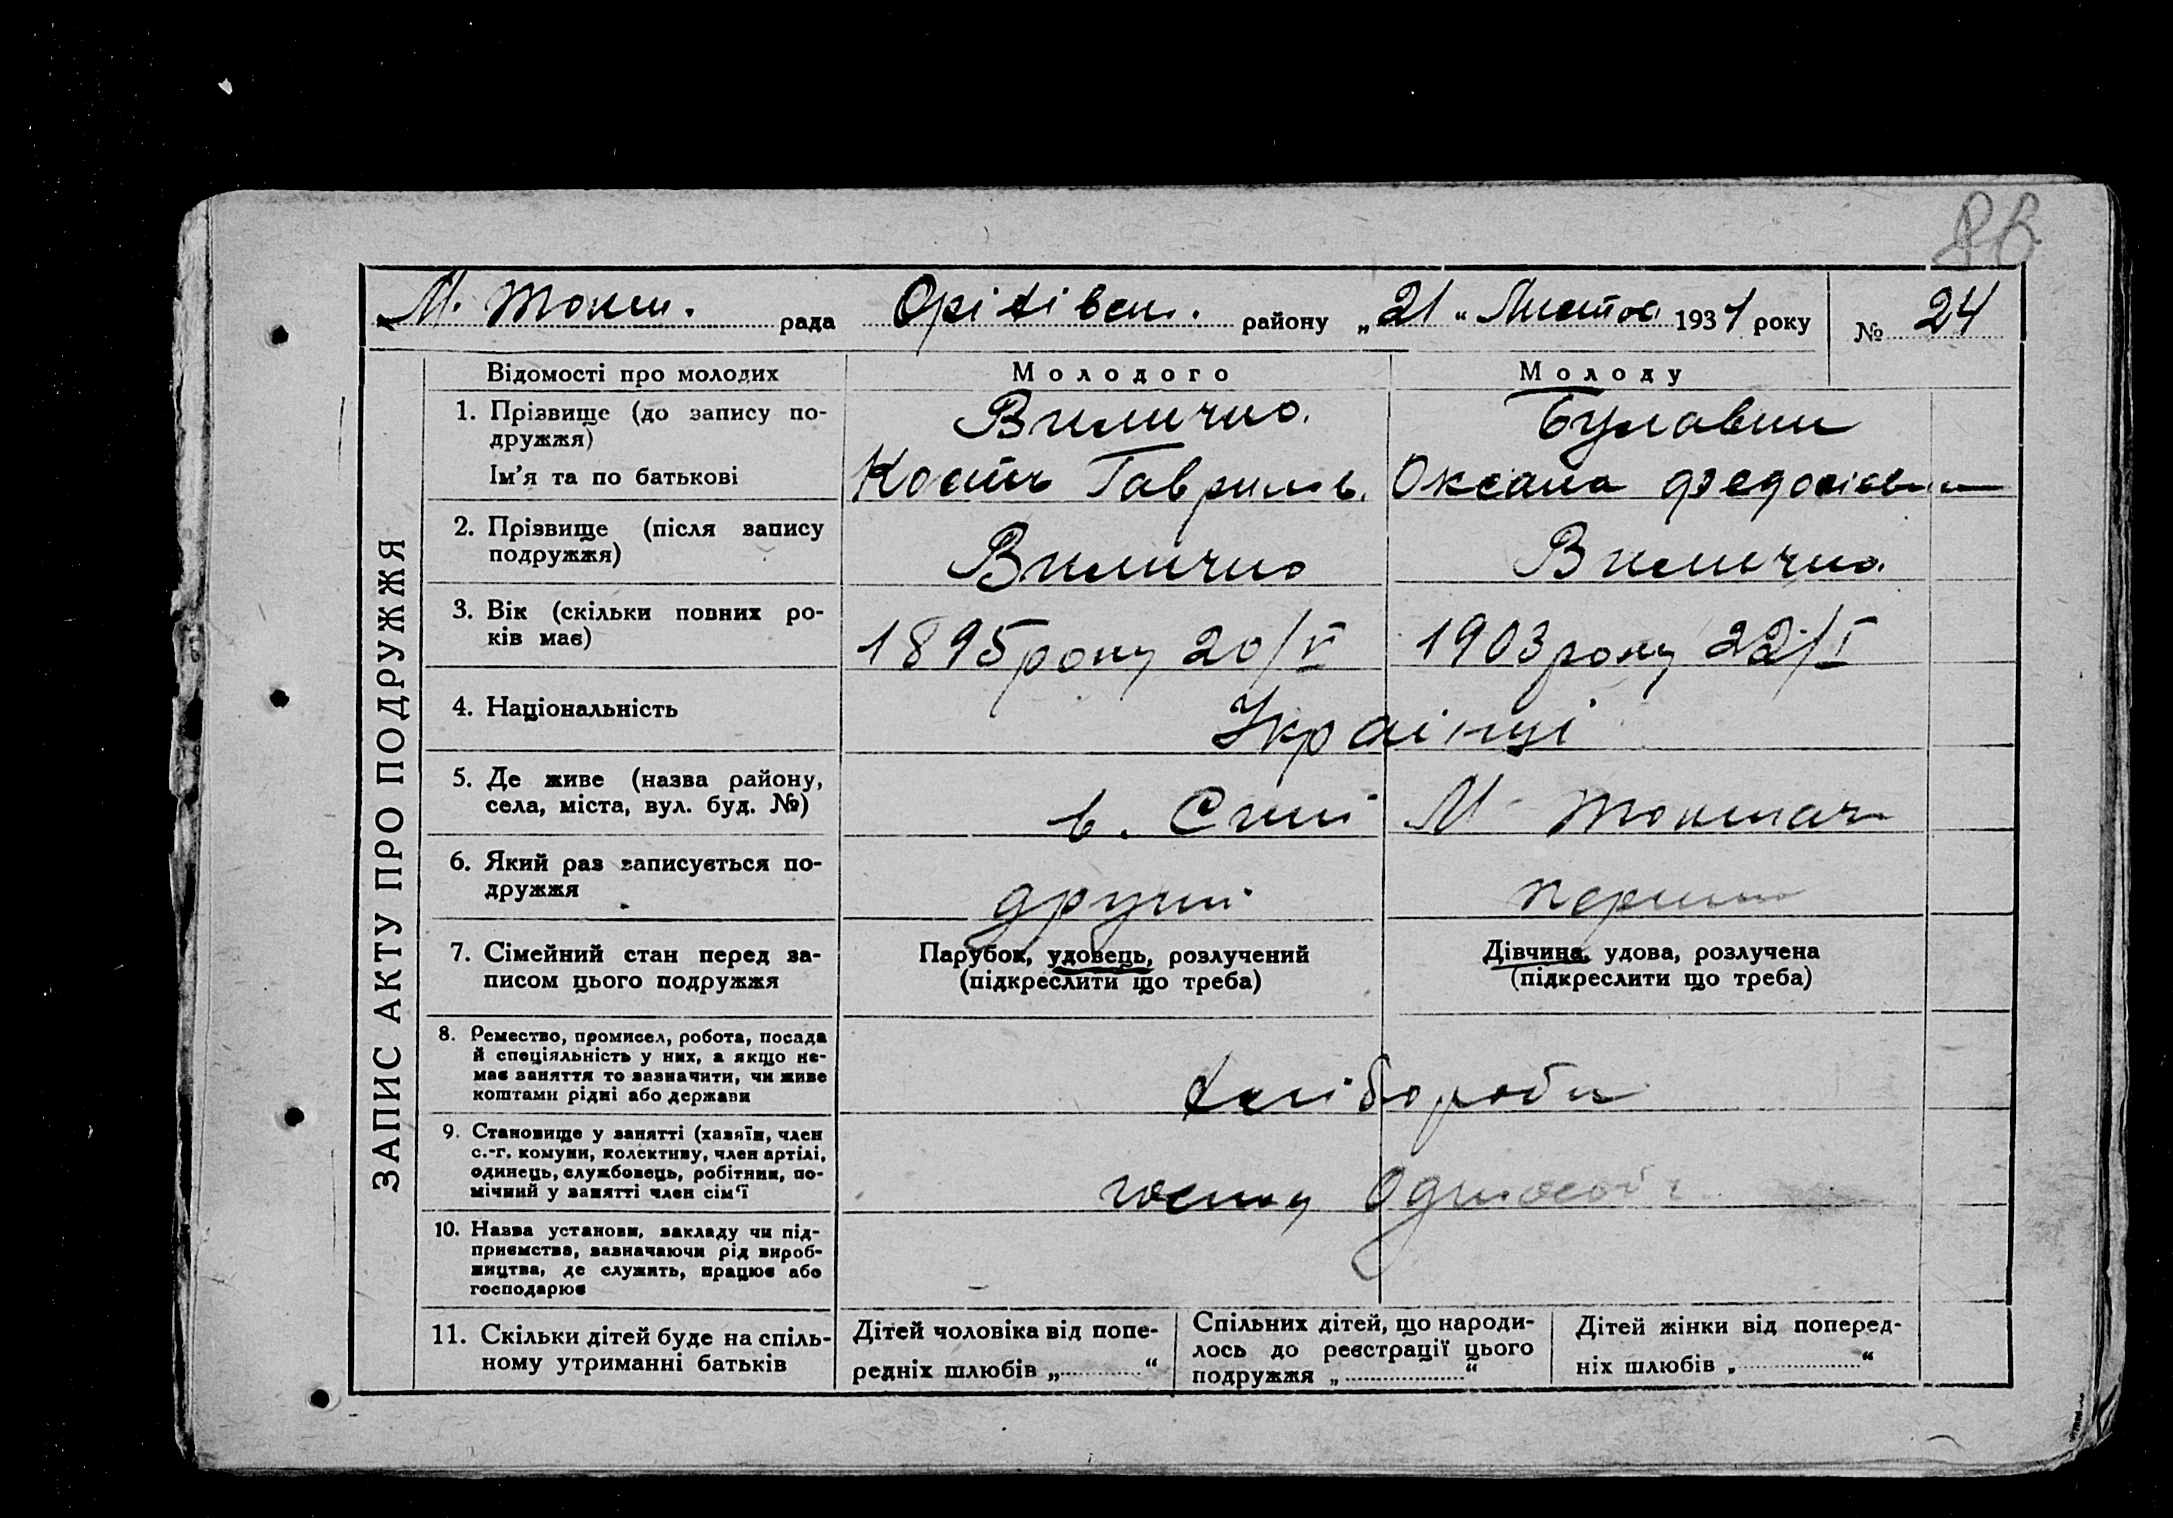 88
М. Токм. рада Оріхівськ. району „21“ Листоп 1931 року № 24
ЗАПИС АКТУ ПРО ПОДРУЖЖЯ
Відомості про молодих Молодого Молоду
1. Прізвище (до запису по-
дружжя)
Ім’я та по батькові Кость Гаврилов. Оксана
2. Прізвище (після запису
подружжя)
3. Вік (скільки повних ро-
ків має) 1895 року 20/V 1903 року 22/I
4. Національність Українці
5. Де живе (назва району,
села, міста, вул. буд. №) М Токмач
6. Який раз записується по-
дружжя другий
7. Сімейний стан перед за-
писом цього подружжя
Парубок, удовець, розлучений
(підкреслити що треба)
Дівчина, удова, розлучена
(підкреслити що треба)
8. Ремество, промисел, робота, посада
й спеціяльність у них, а якщо не-
має заняття то зазначити, чи живе
коштами рідні або держави
хлібороби
9. Становище у занятті (хазяїн, член
с.-г. комуни, колективу, член артілі,
одинець, службовець, робітник, по-
мічний у занятті член сім'ї
10. Назва установи, закладу чи під-
приємства, зазначаючи рід вироб-
ництва, де служить, працює або
господарює
11. Скільки дітей буде на спіль-
ному утриманні батьків
Дітей чоловіка від попе-
редніх шлюбів „ “
Спільних дітей, що народи-
лось до реєстрації цього
подружжя „ “
Дітей жінки від поперед-
ніх шлюбів „ “